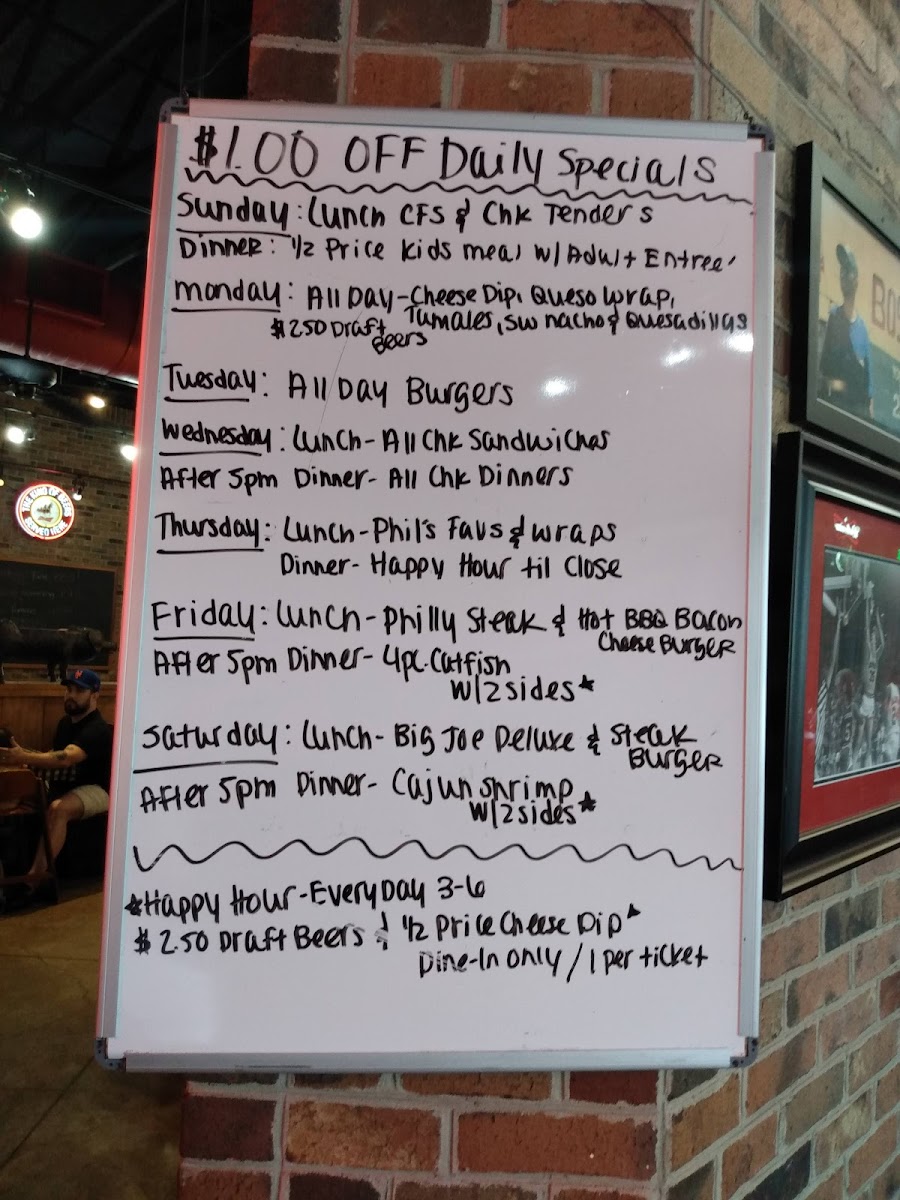 $1.00 OFF Daily Specials
Sunday: Lunch CFS & Chk Tenders
Dinner: 1/2 Price Kids meal w/Adult Entree'
Monday: All Day-Cheese Dip, Queso Wrap,
Tamales, SW nacho & Quesadillas
$2.50 Draft
Beers
Tuesday: All Day Burgers
Wednesday: Lunch-All Chk Sandwiches
After 5pm Dinner- All Chk Dinners
Thursday: Lunch-Phil's Favs & wraps
Dinner- Happy Hour til Close
Friday: Lunch-Philly Steak & Hot BBQ Bacon
Cheese Burger
After 5pm Dinner- 4pc. Catfish
W/2 sides*
Saturday: Lunch- Big Joe Deluxe & Steak
Burger
After 5pm Dinner- Cajun Shrimp
W/2 sides*
*Happy Hour-Everyday 3-6
$2.50 Draft Beers & 1/2 Price Cheese Dip*
Dine-In only / 1 per ticket
THE KING OF BEERS
SERVED HERE
BO